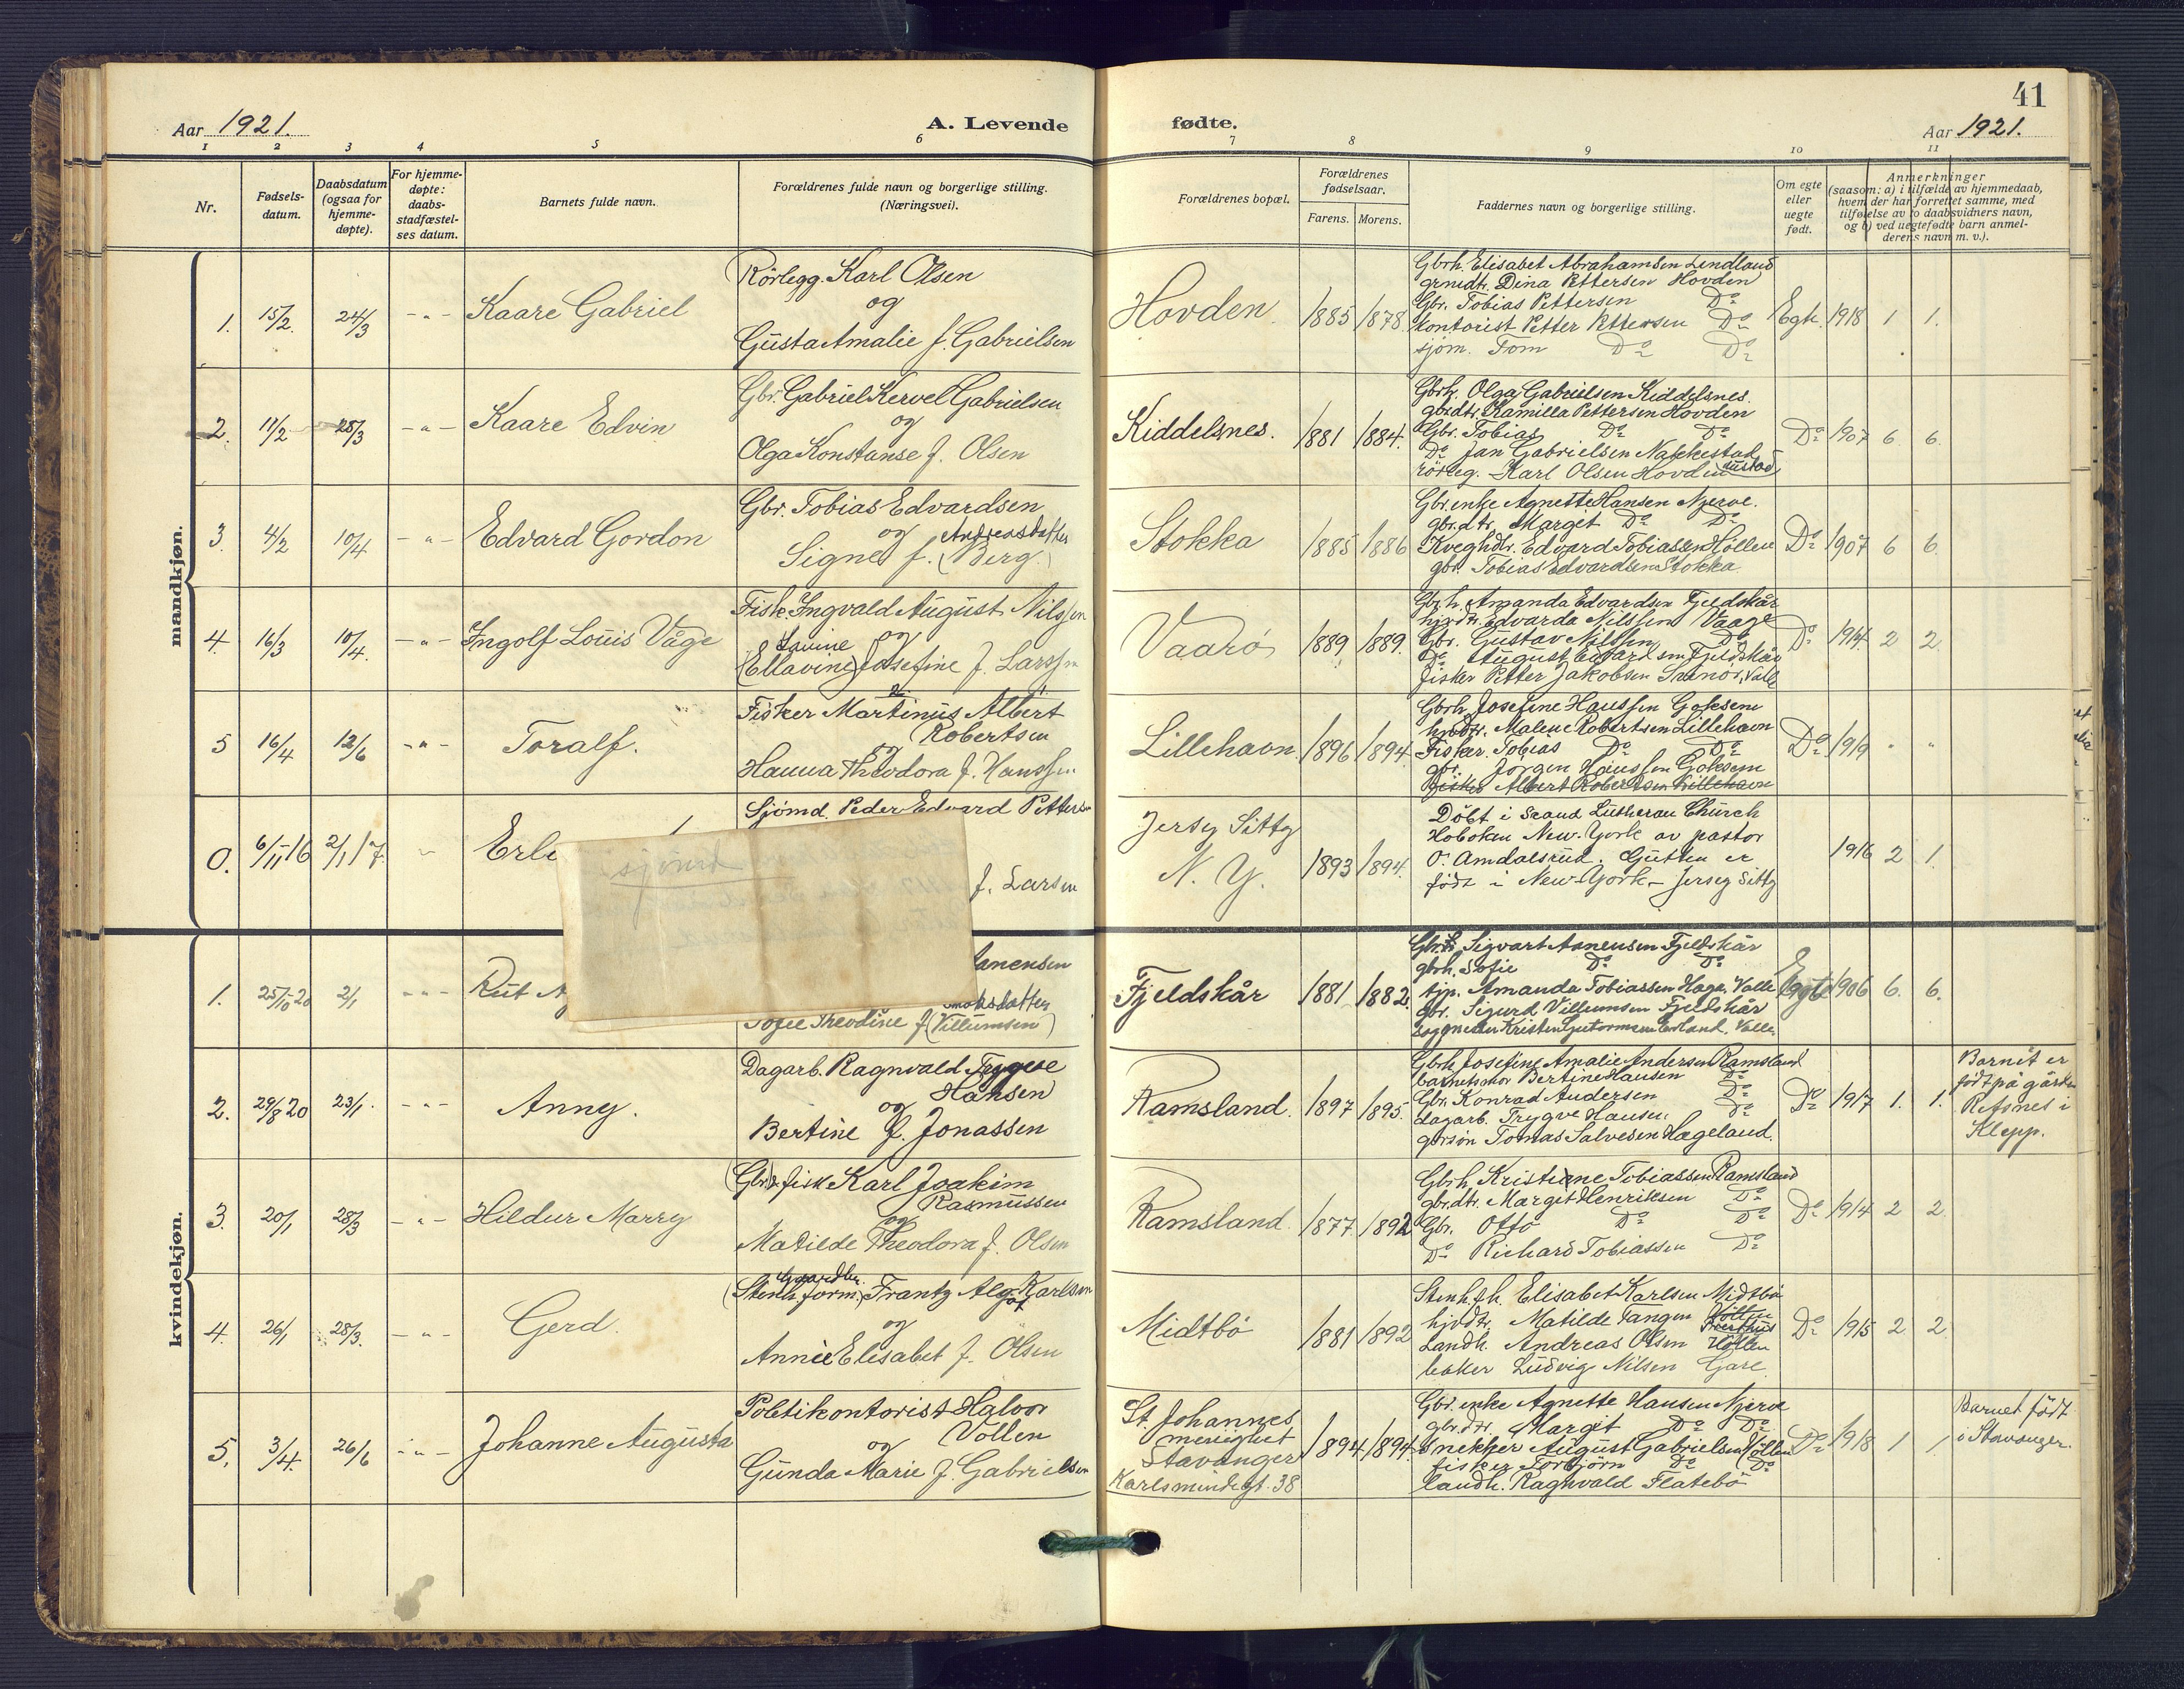 41
Aar 1921.
A. Levende
fødte.
Aar 1921.
1 2 3 4 5 6 7 8 9 10 11
Nr.
Fødsels-
datum.
Daabsdatum
(ogsaa for
hjemme-
døpte).
For hjemme-
døpte:
daabs-
stadfæstel-
ses datum.
Barnets fulde navn.
Forældrenes fulde navn og borgerlige stilling.
(Næringsvei).
Forældrenes bopæl.
Forældrenes
fødselsaar.
Farens. Morens.
Faddernes navn og borgerlige stilling.
Om egte
eller
uegte
født.
Anmerkninger
(saasom: a) i tilfælde av hjemmedaab,
hvem der har forrettet samme, med
tilføielse av to daabsvidners navn,
og b) ved uegtefødte barn anmel-
derens navn m. v.).
mandkjøn.
1. 15/2. 24/3 - " - Kaare Gabriel
Rörlegg. Karl Olsen
og
Gusta Amalie f. Gabrielsen
Hovden 1885 1878
Gbrh. Elisabet Abrahamsen Lindland
grmdtr. Dina Pettersen Hovden
Gbr. Tobias Pettersen Do
Kontorist Petter Pettersen Do
sjøm. Tom Do Do
Egte. 1918 1 1.
2. 11/2 28/3 - " - Kaare Edvin
Gbr. Gabriel Kervel Gabrielsen
og
Olga Konstanse f. Olsen
Kiddelsnes. 1881 1884.
Gbrh. Olga Gabrielsen Kiddelsnes.
gbrdtr. Kamilla Pettersen Hovden
Gbr. Tobias Do Do
Do Jan Gabrielsen Nakkestad
rörleg. Karl Olsen Hovden
Do 1907 6 6.
3. 4/2 10/4 - " - Edvard Gordon
Gbr. Tobias Edvardsen
og Andreasdatter
Signe f. (Berg.)
Stokka 1885 1886
Gbrenke Agnette Hansen Njerve.
gbr.dtr. Margit Do Do
Kveghdlr. Edvard Tobiassen Höllen
gbr. Tobias Edvardsen Stokka
Do 1907 6 6.
4. 16/3 10/4. - " - Ingolf Louis Våge
Fisk. Ingvald August Nilssen
Lavine og
(Ellavine) Josefine f. Larssen
Vaarö 1889 1889.
Gbrh. Amanda Edvardsen Fjeldskår
hjvdtr. Edvarda Nilssen Vaage
Gbr. Gustav Nilssen Do
Do August Edvardsen Fjeldskår
fisker Petter Jakobsen Svinör, Valle
Do 1914. 2 2.
5 16/4 12/6 - " - Toralf.
Fisker Martinus Albert
Robertsen
og
Hanna Theodora f. Hanssen
Lillehavn 1896 1894.
Gbrh. Josefine Hanssen Goksem
hjvdtr. Malene Robertsen Lillehavn
Fisker. Tobias Do Do
gbr. Jörgen Hanssen Goksem
fisker Albert Robertsen Lillehavn
Do 1919 " "
0. 6/11 16 2/1 17. " Erli
Sjömd. Peder Edvard Pettersen
f. Larsen
Jersy Sitty
N. Y.
1893 1894.
Döbt i Scand Lutheran Church
Hoboken New-York av pastor
O. Amdalsrud. Gutten er
födt i New-York - Jersey Sitty
1916 2 1.
sjömd
kvindekjøn.
1. 25/10 20 2/1 - " - Rut A
Sofie Theodine f. (Villumsen)
Fjeldskår 1881 1882.
Gbr. Sigvart Aanensen Fjeldskår
gbrh. Sofie Do Do
tjp. Amanda Tobiassen Haga. Valle
gbr. Sigurd Villumsen Fjeldskår
Egte 1906 6. 6.
2. 29/8 20 23/1. - " - Anny.
Dagarb. Ragnvald Trygve
Hansen
og
Bertine f. Jonassen
Ramsland. 1897 1895.
Gbrh. Josefine Amalie Andersen Ramsland
barnets mor Bertine Hansen Do
Gbr. Konrad Andersen Do
dagarb. Trygve Hansen Do
gbrsön Tomas Salvesen Hægeland.
Do 1917 1. 1.
Barnet er
födt på gården
Refsnes i
Klepp.
3. 20/1 28/3 - " - Hildur Marry
(Gbr) & fisk Karl Joakim
Rasmussen
og
Matilde Theodora f. Olsen
Ramsland 1877 1892
Gbrh Kristiane Tobiassen Ramsland
gbrdtr. Margit Henriksen Do
Gbr. Otto Do Do
Do Richard Tobiassen Do
Do 1914 2 2.
4. 26/1 28/3. - " - Gerd.
(Stenh. form.) Frantz Alg. Karlsen
og
Annie Elisabet f. Olsen
Midtbö 1881 1892
Stenh. fh. Elisabet Karlsen Midtbö
hjvdtr. Matilde Tangen
Landh. Andreas Olsen Höllen
baker Ludvig Nilsen Gare
Do 1915 2 2.
5. 3/4. 26/6 - " - Johanne Augusta
Politikontorist Halvor
Vollen
og
Gunda Marie f. Gabrielsen
St. Johannes
menighet
Stavanger
Karlsmindegt. 38
1894 1894.
Gbr. enke Agnette Hansen Njerve
gbr.dtr. Margit Do Do
Snekker August Gabrielsen Höllen
fisker Torbjörn Do Do
landh. Ragnvald Flatebö
Do 1918 1 1
Barnet födt
i Stavanger.